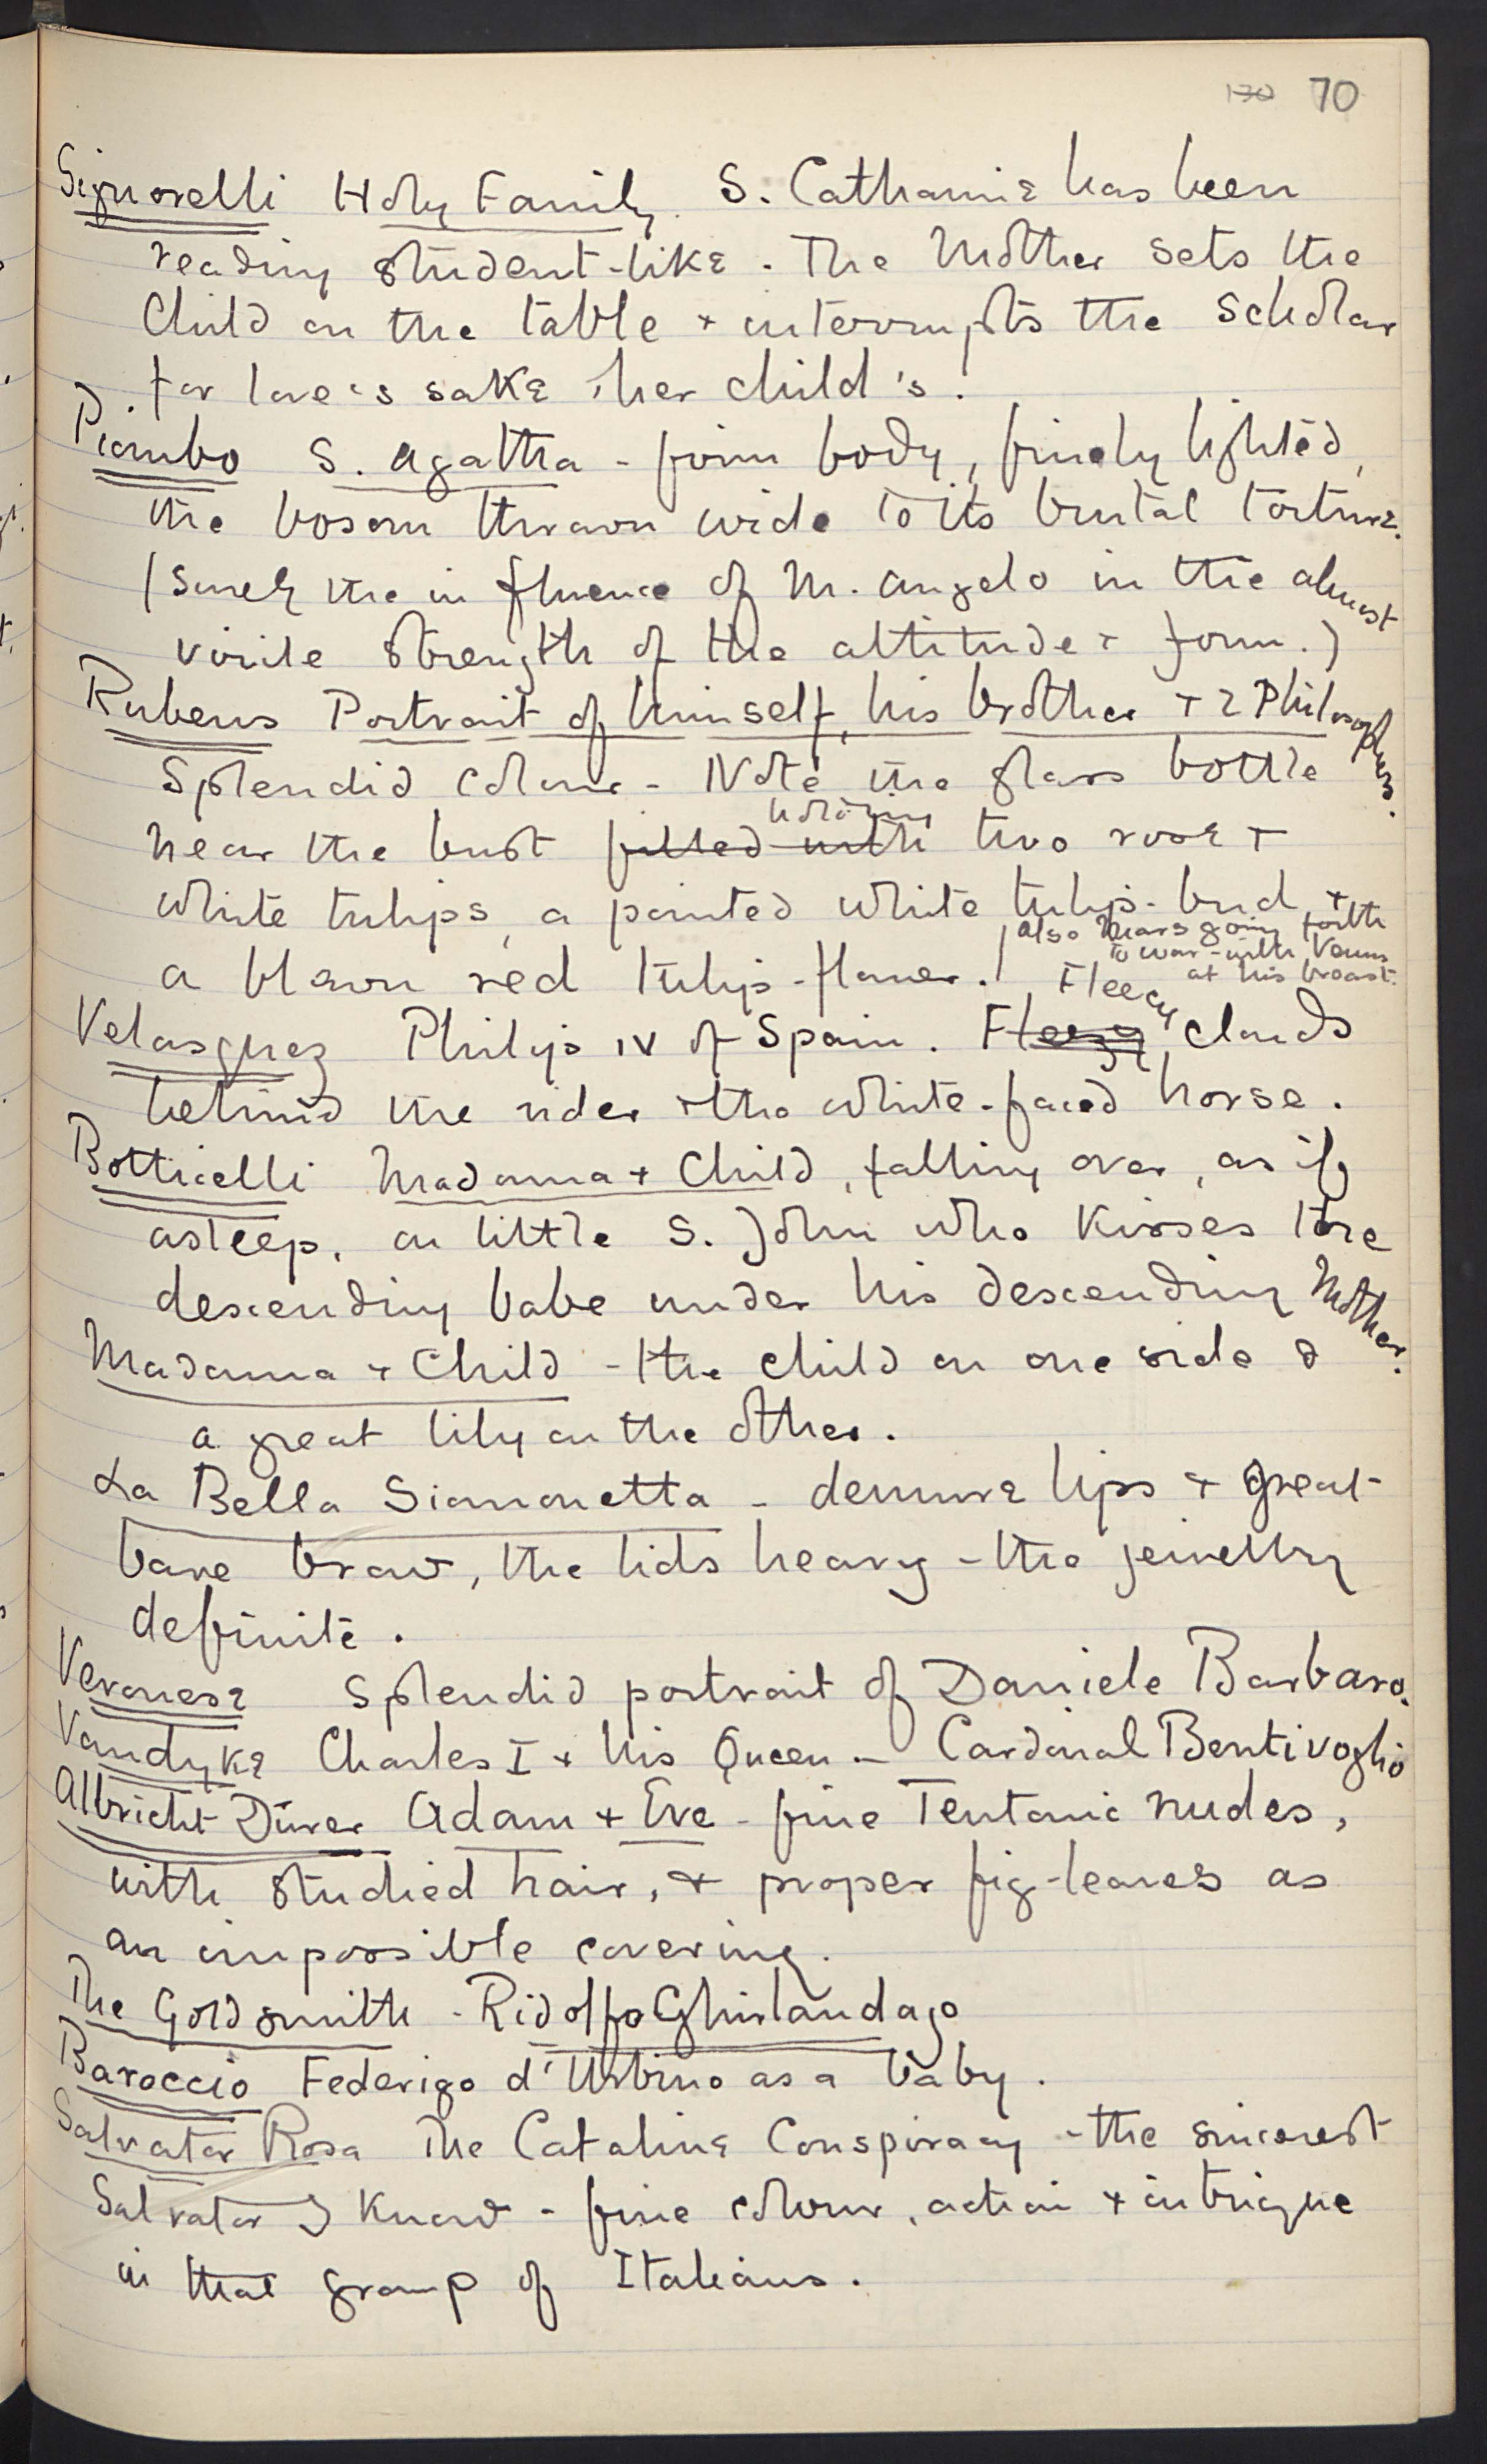 130 70
Signorelli Holy Family. S. Catharine has been
reading student-like. The Mother sets the
Child on the table + interrupts the scholar
for love's sake, her child's.
Piombo S. Agatha - firm body, finely lighted,
the bosom thrown wide to its brutal torture.
(Surely the influence of M. Angelo in the almost
virile strength of the attitude + form.)
Rubens Portrait of himself, his brother + 2 Philosophers.
Splendid colour - Note the glass bottle
near the bust filled with holding two rose +
white tulips, a pointed white tulip-bud, +
a blown red tulip-flower. | also Mars going forth
to war - with Venus
at his breast.
Velasquez Philip IV of Spain. Fleecy clouds
behind the rider + the white-faced horse.
Botticelli Madonna + Child, falling over, as if
asleep, on little S. John who kisses the
descending babe under his descending Mother.
Madonna + Child - the child on one side &
a great lily on the other.
La Bella Simonetta - demure lips + great
bare brow, the lids heavy - the jewellry
definite.
Veronese Splendid portrait of Daniele Barbaro.
Vandyke Charles I + his Queen - Cardinal Bentivoglio
Albricht Dürer Adam + Eve - fine Teutonic nudes,
with studied hair, + proper fig-leaves as
an impossible covering.
The Goldsmith - Ridolfo Ghirlandajo
Baroccio Federigo d'Urbino as a baby.
Salvator Rosa The Cataline Conspiracy - the sincerest
Salvator I know - fine colour, action + intrigue
in that group of Italians.